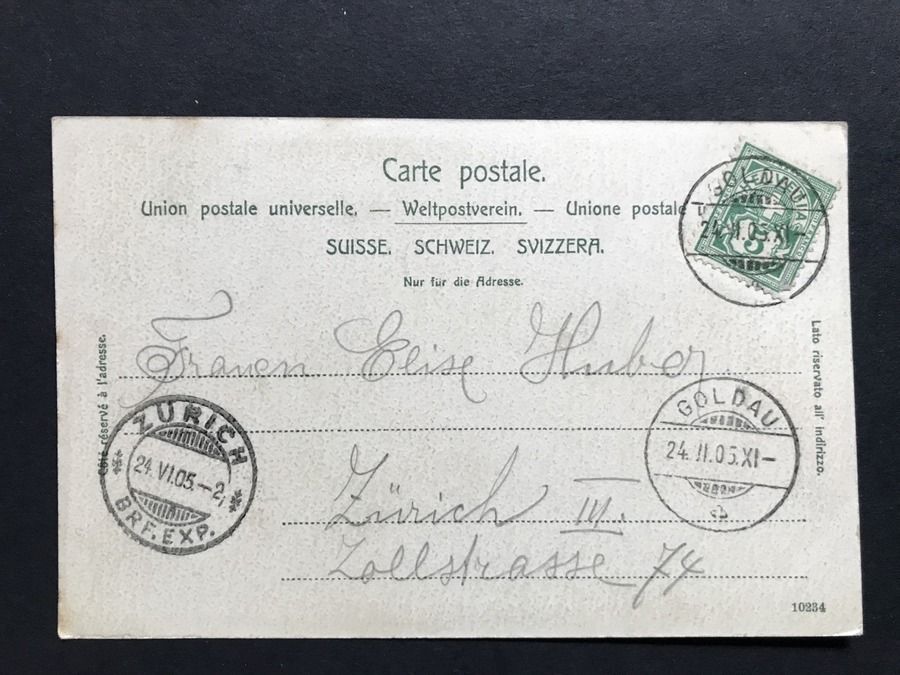 Carte postale.
Union postale universelle. — Weltpostverein. — Unione postale u
SUISSE. SCHWEIZ. SVIZZERA.
Nur für die Adresse.
GOLDAU
24.II.05.XI–
5
Côté réservé à l'adresse.
Lato riservato all' indirizzo.
Frauen Elise Huber
ZÜRICH
24.VI.05.–2
BRF. EXP.
GOLDAU
24.II.05.XI–
Zürich III.
Zollstrasse 74
10234